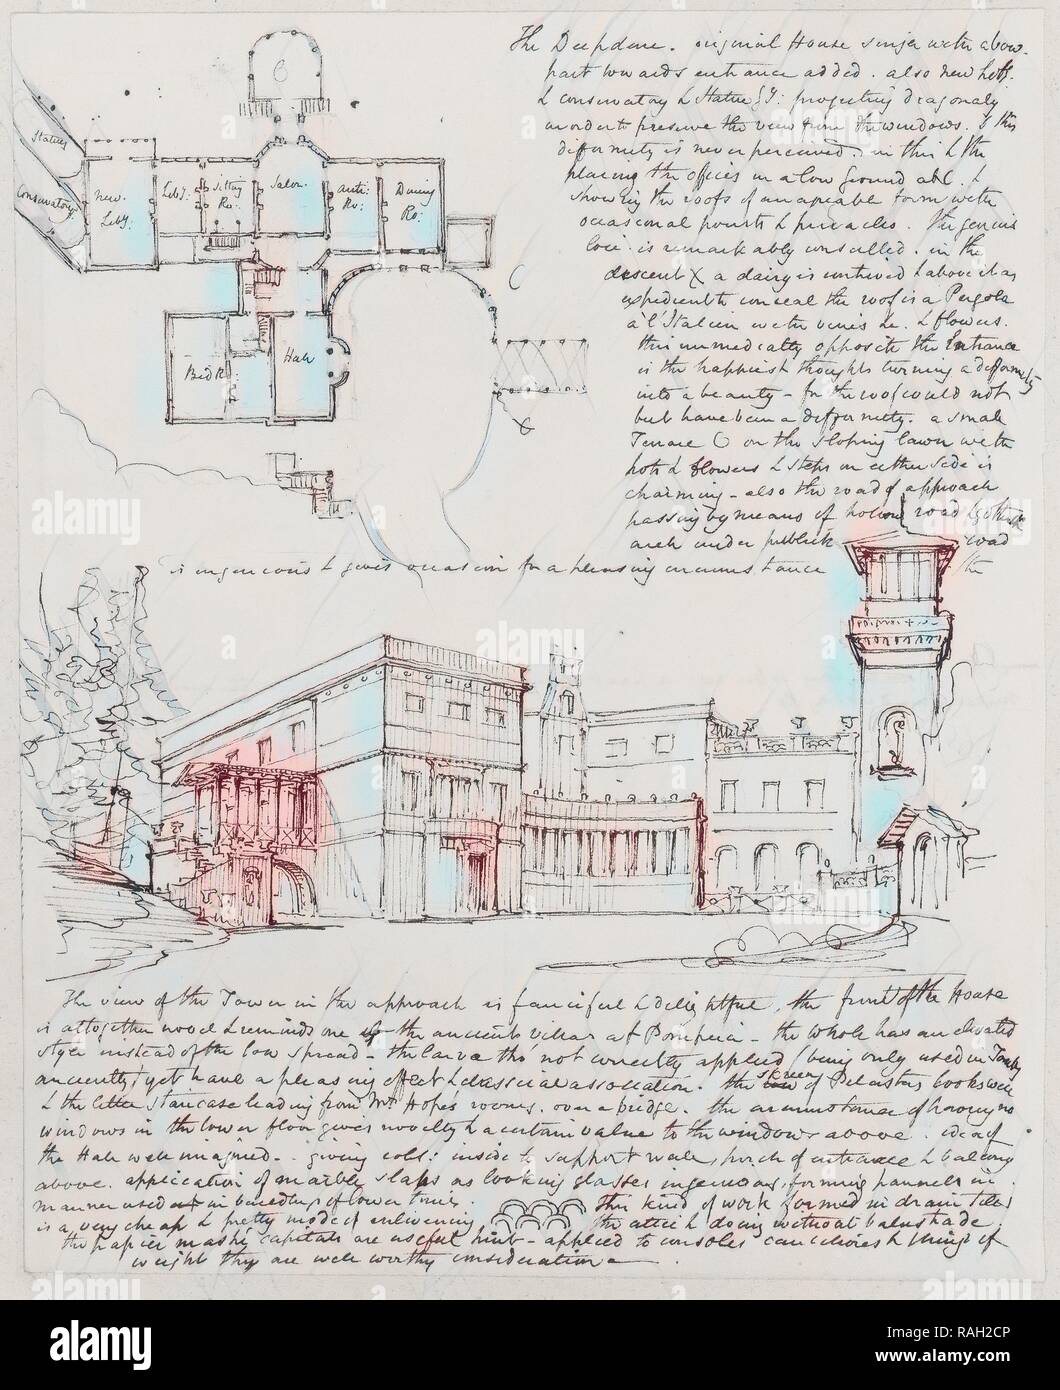 The Deepdene. original House singer with a bow.
part towards entrance added. also new Liby.
& conservatory & Statue Gy: projecting diagonaly
in order to preserve the view from the windows. & this
difformity is never perceived. in this & the
placing the offices in a low ground &c. &
showing the roofs of an agreable form with
occasional points & pinacles. The genius
loci is remarkably consulted. in the
descent X a dairy is contrived & above it as
expedient to conceal the roof is a Pergola
à l'Italien with vines &c. & flowers.
this immediatly opposite the Entrance
is the happiest thought turning a difformity
into a beauty - for the roof would not
but have been a difformity. a small
Terrace C on the sloping lawn with
pots & flowers & steps on either side is
charming - also the road of approach
passing by means of hollow road & gothick
arch under publick road
is ingenious & gives occasion for a pleasing circumstance the
C
Statues
Conservatory
new Liby:
Liby:
Sitting Ro:
Salon.
anti: Ro:
Dining Ro:
Bed Ro:
Hall
C
The view of the Tower in the approach is fanciful & delightful. the front of the House
is altogether novel & reminds one of the ancient villas at Pompeia - the whole has an elevated
style instead of the low spread - the larvæ tho not correctly applied (being only used in Tombs
anciently) yet have a pleasing effect & classical association. the screen of Pelasters looks well
& the little staircase leading from Mr Hope's rooms. over a bridge. the circumstance of having no
windows in the lower floor gives novelty & a certain value to the windows above. idea of
the Hall well imagined - giving cols: inside to support wall, porch of entrance & balcony
above. application of marble slabs as looking glasses ingenious, forming pannels in
manner used in buildings of lower times. this kind of work formed in drain tiles
is a very cheap & pretty mode of enlivening the attic & doing without balustrade.
the papier mashé capitals are useful hint - applied to consoles canelivres & things of
weight they are well worthy consideration
alamy
RAH2CP
www.alamy.com